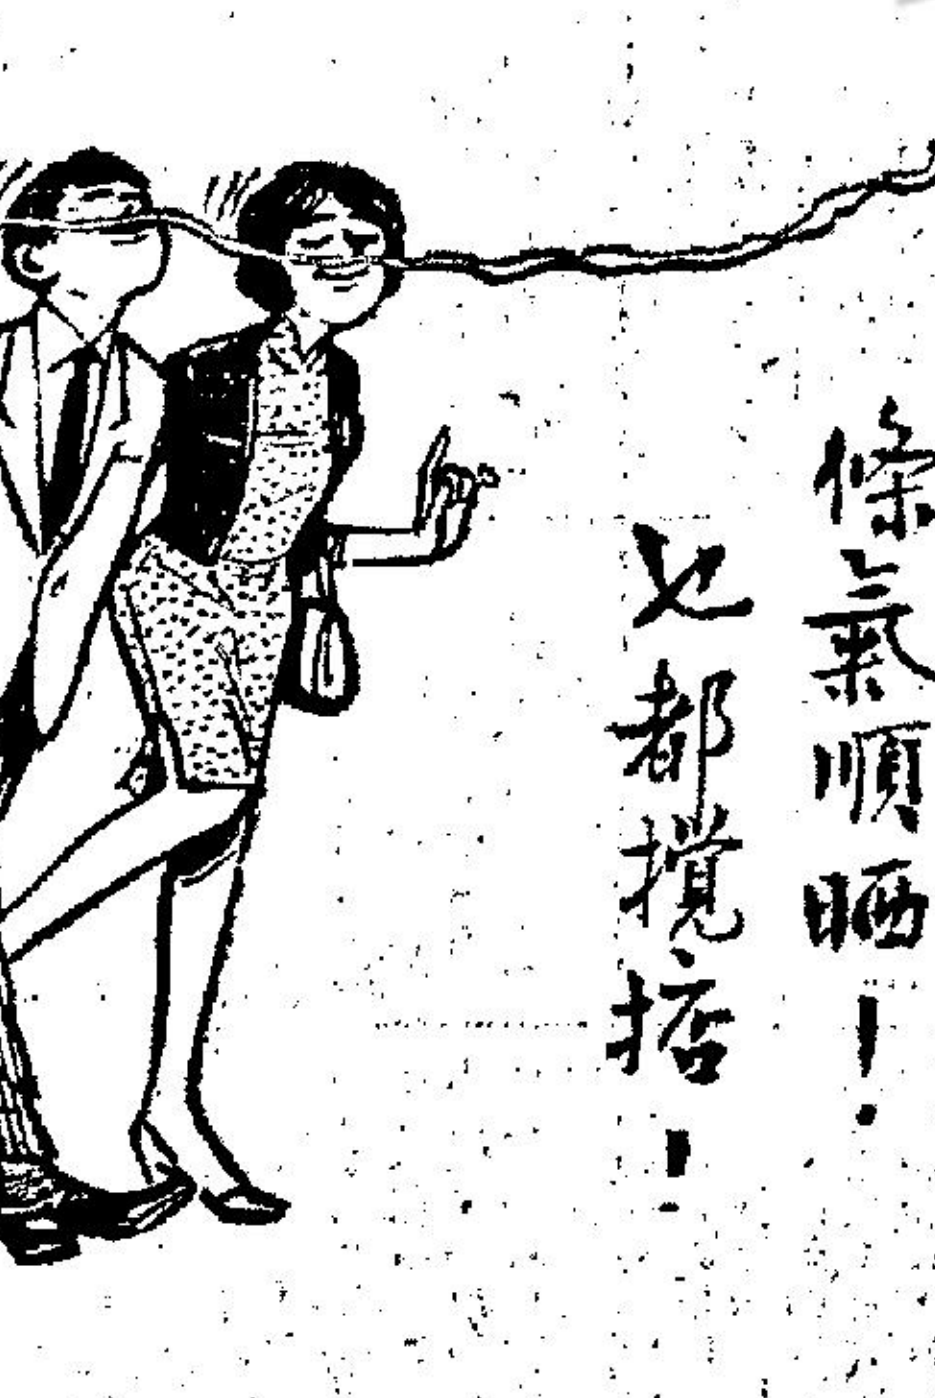 條氣順晒！
乜都撹掂！